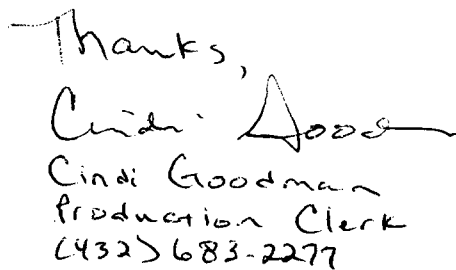 Thanks,
Cindi Good
Cindi Goodman
Production Clerk
(432) 683-2277